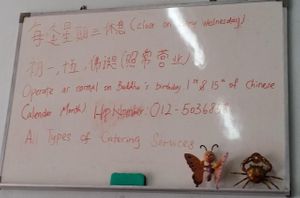 每逢星期三休息 (close on every Wednesday)
初一,十五,佛誕 (照常营业)
Operate as normal on Buddha's birthday, 1st & 15th of Chinese
Calendar Month) Hp Number: 012-
All Types of Catering Services